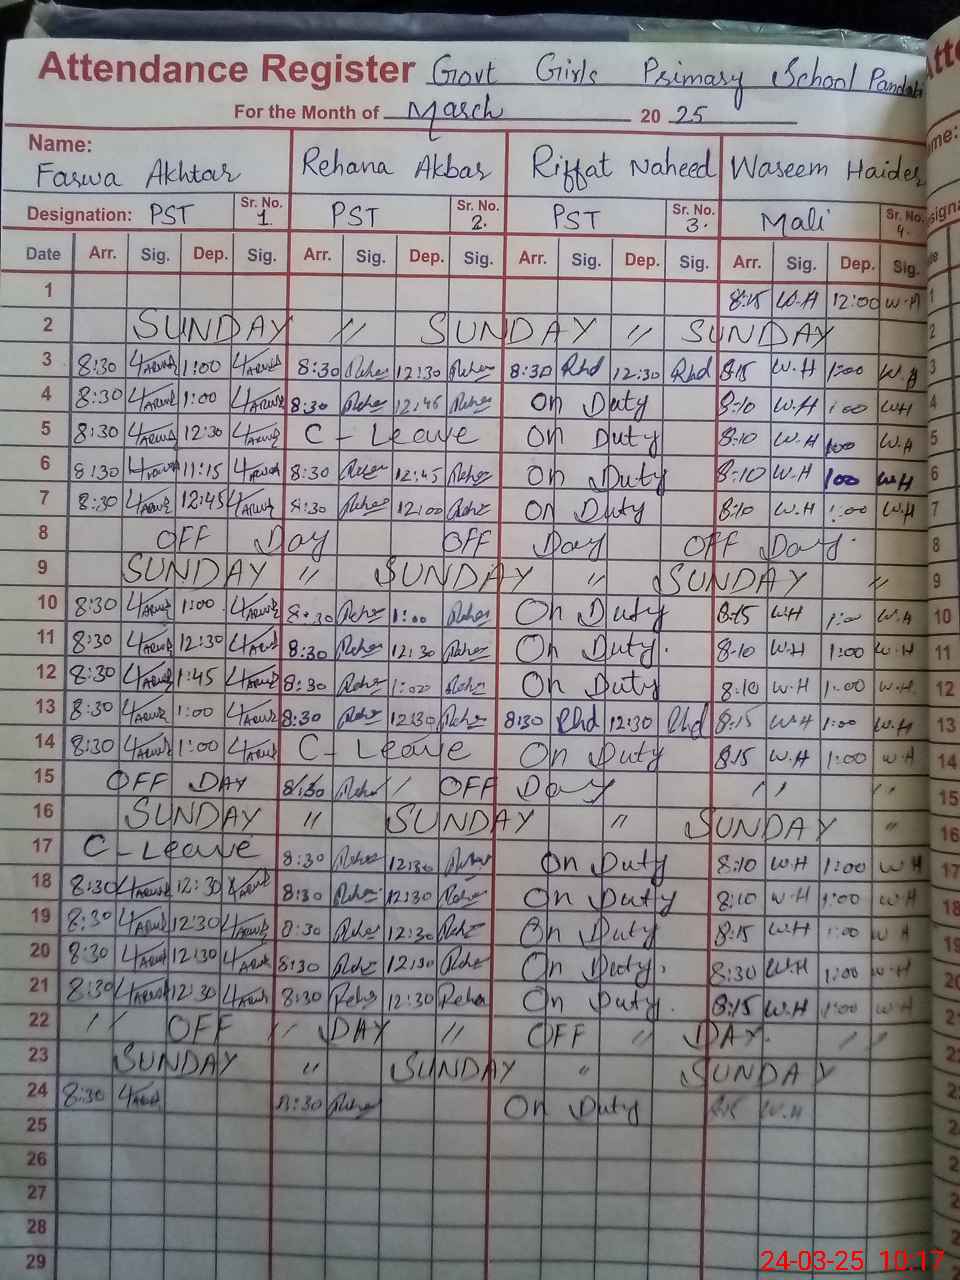 Attendance Register Govt Girls Primary School
For the Month of March 2025
Name: Farwa Akhtar Rehana Akbar Riffat Naheed Waseem Haider
Designation: PST Sr. No. 1. PST Sr. No. 2. PST Sr. No. 3. Mali Sr. No. 4.
Date Arr. Sig. Dep. Sig. Arr. Sig. Dep. Sig. Arr. Sig. Dep. Sig. Arr. Sig. Dep. Sig.
1 8:15 W.H 12:00 W.H
2 SUNDAY " SUNDAY " SUNDAY
3 8:30 1:00 8:30 12:30 8:30 Rhd 12:30 Rhd 8:15 W.H 1:00 W.H
4 8:30 1:00 8:30 12:45 On Duty 8:10 W.H 1:00 W.H
5 8:30 12:30 C - Leave On Duty 8:10 W.H 1:00 W.H
6 8:30 11:15 8:30 12:45 On Duty 8:10 W.H 1:00 W.H
7 8:30 12:45 8:30 12:00 On Duty 8:10 W.H 1:00 W.H
8 OFF Day OFF Day OFF Day.
9 SUNDAY " SUNDAY " SUNDAY "
10 8:30 1:00 8:30 1:00 On Duty 8:15 W.H 1:00 W.H
11 8:30 12:30 8:30 12:30 On Duty. 8:10 W.H 1:00 W.H
12 8:30 1:45 8:30 1:00 On Duty 8:10 W.H 1:00 W.H.
13 8:30 1:00 8:30 12:30 8:30 Rhd 12:30 Rhd 8:15 W.H 1:00 W.H
14 8:30 1:00 C - Leave On Duty 8:15 W.H 1:00 W.H
15 OFF DAY 8:30 OFF Day " "
16 SUNDAY " SUNDAY " SUNDAY "
17 C - Leave 8:30 12:30 On Duty 8:10 W.H 1:00 W H
18 8:30 12:30 8:30 12:30 On Duty 8:10 W.H 1:00 W H
19 8:30 12:30 8:30 12:30 On Duty 8:15 W.H 1:00 W H
20 8:30 12:30 8:30 12:30 On Duty. 8:30 W.H 1:00 W.H
21 8:30 12:30 8:30 Reha 12:30 Reha On Duty. 8:15 W.H 1:00 W H
22 " OFF " DAY " OFF " DAY. "
23 SUNDAY " SUNDAY " SUNDAY
24 8:30 8:30 On Duty W.H
25
26
27
28
29
24-03-25 10:17